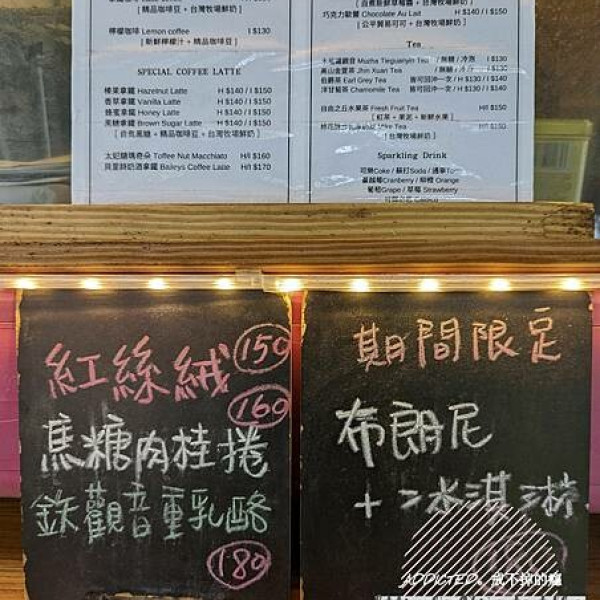 [ 精品咖啡豆 + 台灣牧場鮮奶 ]
檸檬咖啡 Lemon coffee I $130
[ 新鮮檸檬汁 + 精品咖啡豆 ]
SPECIAL COFFEE LATTE
榛果拿鐵 Hazelnut Latte H $140 / I $150
香草拿鐵 Vanilla Latte H $140 / I $150
蜂蜜拿鐵 Honey Latte H $140 / I $150
黑糖拿鐵 Brown Sugar Latte H $140 / I $150
[ 自煮黑糖 + 精品咖啡豆 + 台灣牧場鮮奶 ]
太妃糖瑪奇朵 Toffee Nut Macchiato H/I $160
貝里詩奶酒拿鐵 Baileys Coffee Latte H/I $170
巧克力歐蕾 Chocolate Au Lait H $140 / I $150
[ 公平貿易可可 + 台灣牧場鮮奶 ]
Tea
Muzha Tieguanyin Tea / 無糖 / 冷泡 I $130
高山金萱茶 Jhin Xuan Tea / 無糖 / 冷泡 I $130
伯爵茶 Earl Grey Tea 皆可回沖一次 / H $130 / I $140
洋甘菊茶 Chamomile Tea 皆可回沖一次 / H $130 / I $140
自由之丘水果茶 Fresh Fruit Tea H/I $150
[ 紅茶 + 果泥 + 新鮮水果 ]
Tea H/I $150
[ 台灣牧場鮮奶 ]
Sparkling Drink
可樂Coke / 蘇打Soda / 通寧To
蔓越莓Cranberry / 柳橙 Orange
葡萄Grape / 草莓 Strawberry
紅絲絨 150
160
焦糖肉桂捲
鉄觀音重乳酪
180
期間限定
布朗尼
+ 冰淇淋
ADDICTED。戒不掉的癮